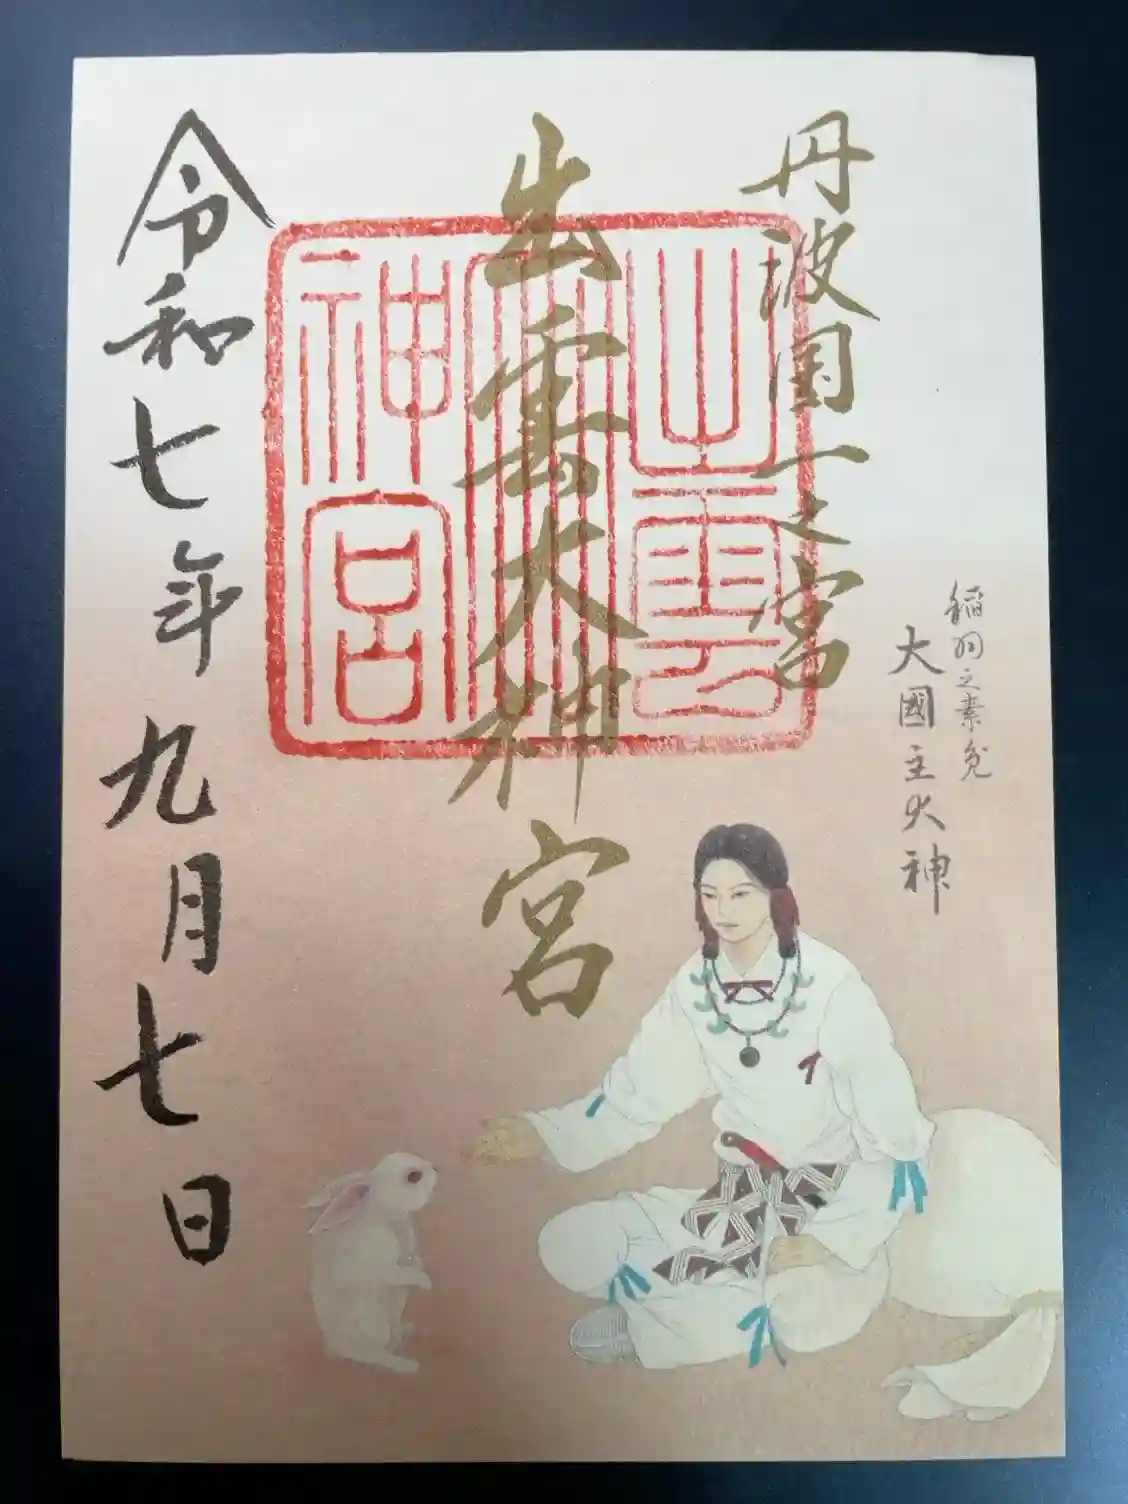 丹波國一之宮
出雲大神宮
出雲
大
神宮
稲羽之素兎
大國主大神
令和七年九月七日